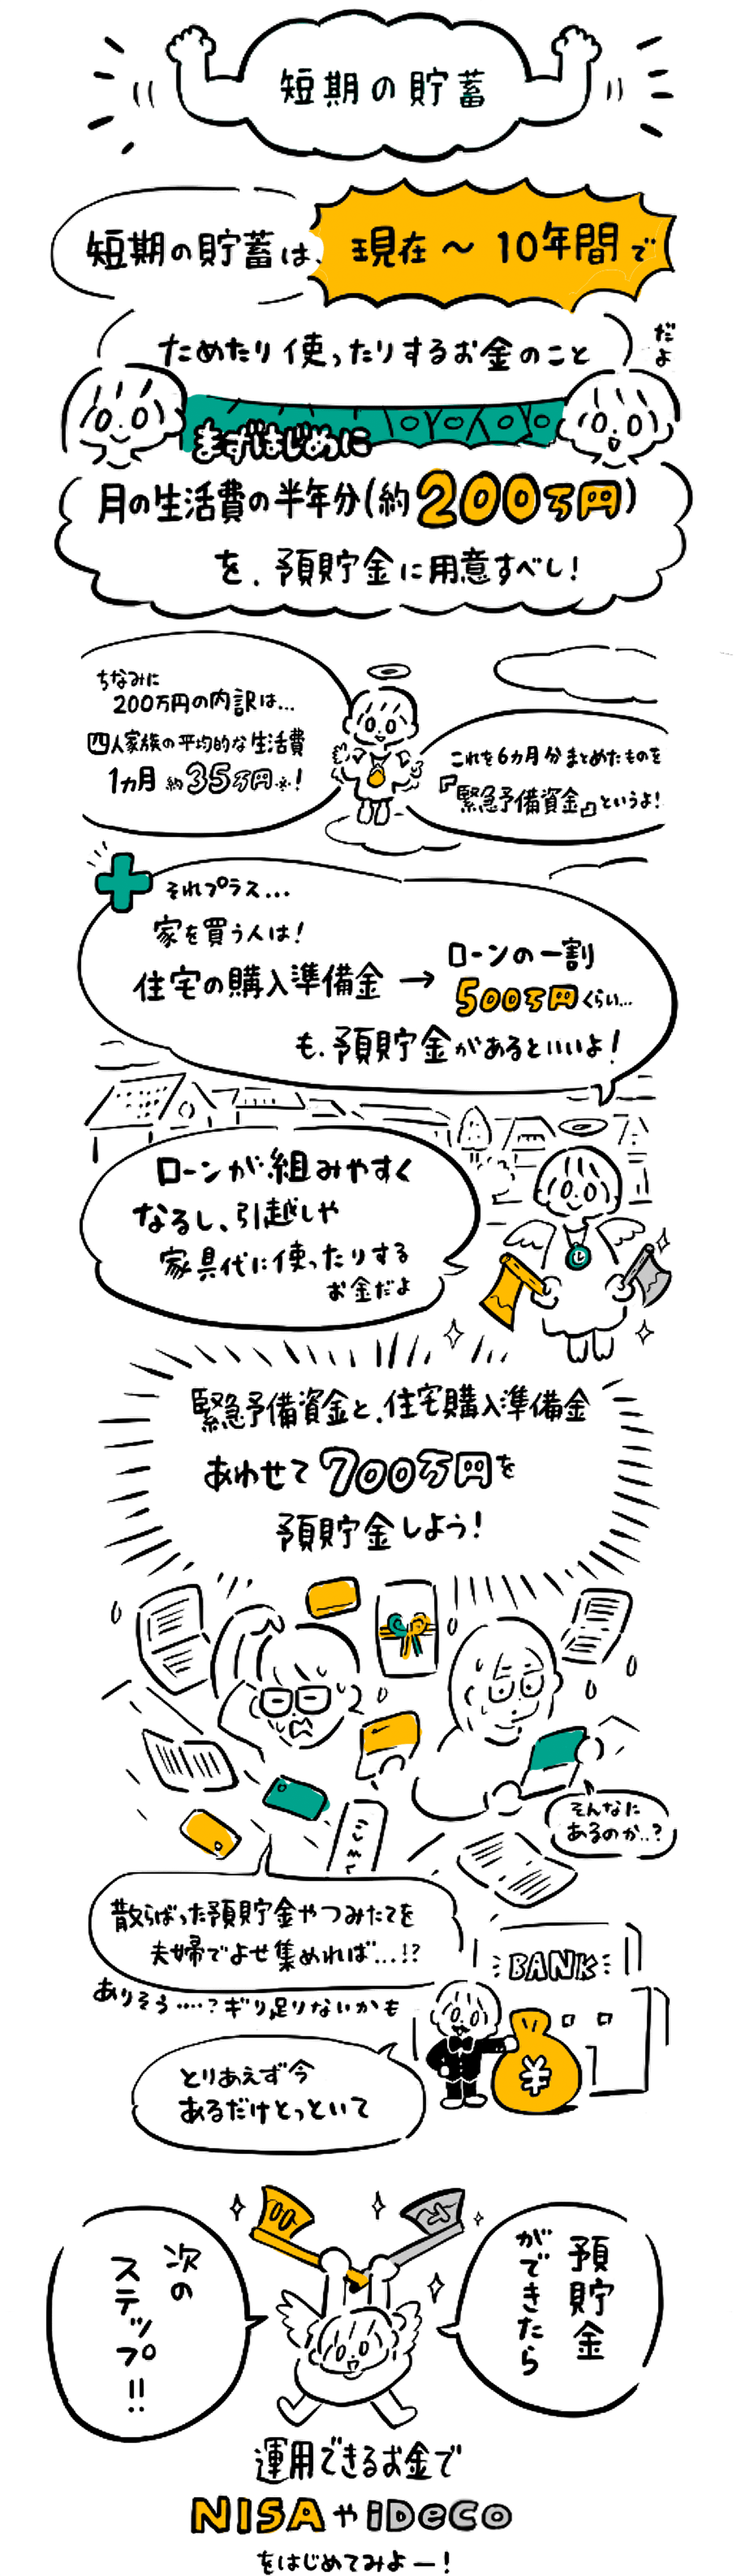 短期の貯蓄
短期の貯蓄は、現在〜10年間で
ためたり使ったりするお金のこと
だよ
まずはじめに
月の生活費の半年分(約200万円)
を、預貯金に用意すべし!
ちなみに
200万円の内訳は...
四人家族の平均的な生活費
1ヵ月 約35万円※!
これを6ヵ月分まとめたものを
『緊急予備資金』というよ!
それプラス...
家を買う人は!
住宅の購入準備金→
ローンの一割
500万円くらい...
も、預貯金があるといいよ!
ローンが組みやすく
なるし、引越しや
家具代に使ったりする
お金だよ
緊急予備資金と、住宅購入準備金
あわせて700万円を
預貯金しよう!
そんなに
あるのか..?
散らばった預貯金やつみたてを
夫婦でよせ集めれば...!?
ありそう....?ギリ足りないかも
BANK
¥
とりあえず今
あるだけとっといて
預貯金
ができたら
次の
ステップ!!
運用できるお金で
NISAやiDeCo
をはじめてみよー!